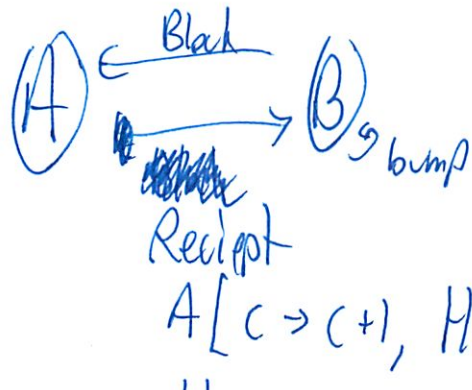 Block
A B
bump
Reciept
A[C→C+1, H